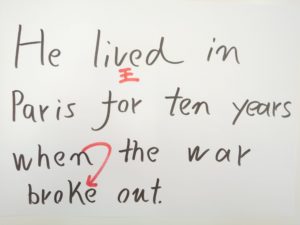 He lived in
王
Paris for ten years
when the war
broke out.